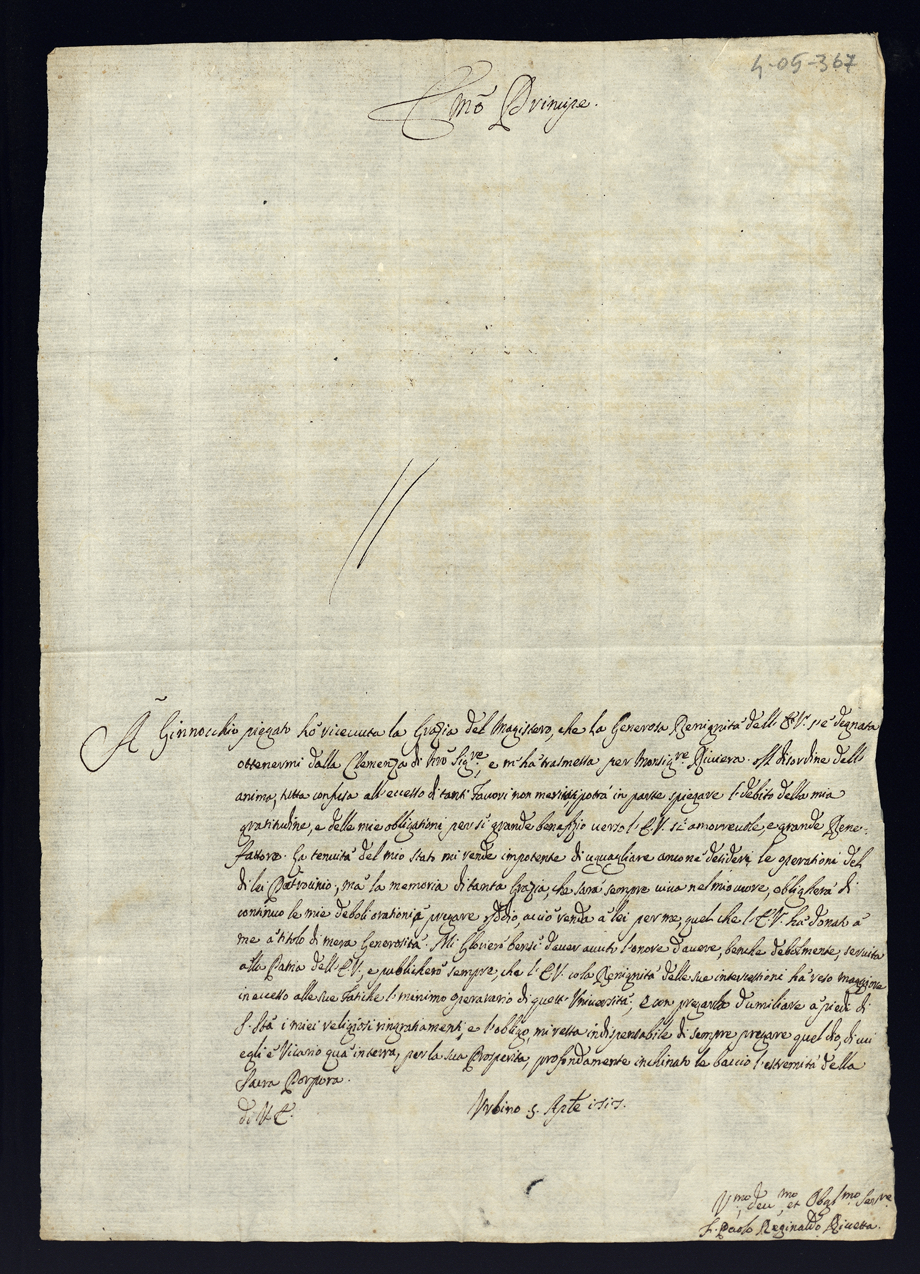 4-05-367
Em̃o Principe.
A Ginnocchio piegato hò riceuuta la Grazia del Magistero, che la Generosa Benignità dell' E.V. s'è degnata
ottenermi dalla Clemenza di Nr̃o Sigre, e m'hà trasmessa per Monsigre Riviera. Il disordine dell'
anima, tutta confusa all'eccesso di tanti Fauori non meritati potrà in parte spiegare l'debito della mia
gratitudine, e delle mie obligationi per sì grande benefizio uerso l'E.V. sì amorreuole, e grande Bene-
fattore. La tenuità del mio stato mi rende impotente di uguagliare anco ne' desiderj le operationi del
di lei Patrocinio, mà la memoria di tanta Grazia, che sarà sempre viua nel mio cuore, obligherà di
continuo le mie deboli orationi à pregare Iddio, acciò renda à lei per me, quel che l'E.V. hà donato à
me à titolo di mera Generosità. Mi Glorierò bensì d'auer auuto l'onore d'auere, benche debolmente, seruita
alla Patria dell'E.V., e publicherò sempre, che l'E.V. cola Benignità delle sue intercessioni hà reso maggiore
in eccesso alle sue Fatiche l'minimo operario di quest'Vniuersità, e con pregarla d'umiliare a' piedi di
S. Stà i miei religiosi ringratiamenti, e l'obligo, mi resta indispensabile di sempre pregare quel Dio, di cui
egli è Vicario quà in terra, per la sua Prosperità, profondamente inchinato le baccio l'estremità della
Sacra Porpora.
di V.E. Vrbino 5. Aprile 1515.
Vmo, deumo, et Obglmo Serure
F. Paolo Reginaldo Riuetta.